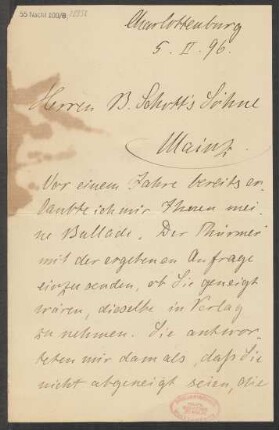 55 Nachl 100/B,
Charlottenburg
5. II. 96.
Herren B. Schott's Söhne
Mainz.
Vor einem Jahre bereits er-
laubte ich mir Ihnen mei-
ne Ballade „Der Thürmer"
mit der ergebenen Anfrage
einzusenden, ob Sie geneigt
wären, dieselbe in Verlag
zu nehmen. Sie antwor-
teten mir damals, daß Sie
nicht abgeneigt seien, die